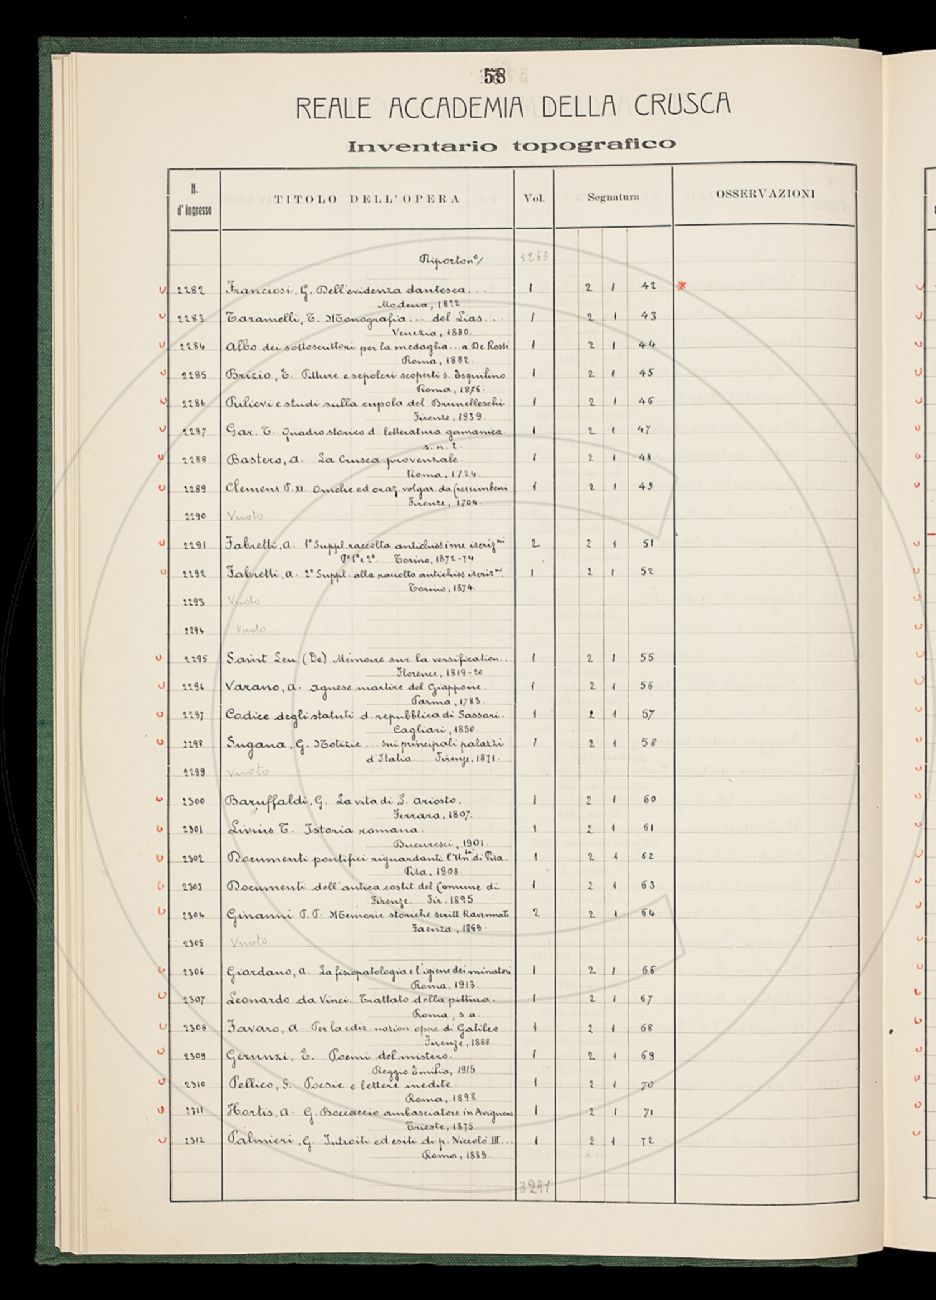 58
REALE ACCADEMIA DELLA CRUSCA
Inventario topografico
N. d'ingresso TITOLO DELL'OPERA Vol. Segnatura OSSERVAZIONI
Riporto n°/ 3263
2282 Franciosi, G. Dell'evidenza dantesca... 1 2 1 42 *
Modena, 1872
2283 Taramelli, T. Monografia... del Lias... 1 2 1 43
Venezia, 1880.
2284 Albo dei sottoscrittori per la medaglia... a De Rossi 1 2 1 44
Roma, 1882.
2285 Brizio, E. Pitture e sepolcri scoperti s. Esquilino 1 2 1 45
Roma, 1876.
2286 Rilievi e studi sulla cupola del Brunelleschi 1 2 1 46
Firenze, 1939.
2287 Gar. T. Quadro storico d. letteratura germanica 1 2 1 47
s. n. t.
2288 Bastero, A. La Crusca provenzale. 1 2 1 48
Roma, 1724.
2289 Clemens P. XI. Omelie ed oraz. volgar. da Crescimbeni 1 2 1 49
Firenze, 1704.
2290 Vuoto
2291 Fabretti, A. 1° Suppl. raccolta antichissime iscriz.ni 2 2 1 51
P.e 1a e 2a Torino, 1872-74
2292 Fabretti, A. 2° Suppl. alla raccolta antichiss. iscriz.ni. 1 2 1 52
Torino, 1874.
2293 Vuoto
2294 Vuoto.
2295 Saint Leu (De) Mémoire sur la versification... 1 2 1 55
Florence, 1819-20
2296 Varano, A. Agnese martire del Giappone 1 2 1 56
Parma, 1783.
2297 Codice degli statuti d. repubblica di Sassari. 1 2 1 57
Cagliari, 1850.
2298 Sugana, G. Notizie... sui principali palazzi 1 2 1 58
d'Italia. Firenze, 1871.
2299 Vuoto
2300 Baruffaldi, G. La vita di L. Ariosto. 1 2 1 60
Ferrara, 1807.
2301 Livius T. Istoria romana. 1 2 1 61
Bucuresci, 1901.
2302 Documenti pontifici riguardanti l'Un.tà di Pisa. 1 2 1 62
Pisa, 1908.
2303 Documenti dell'antica costit. del Comune di 1 2 1 63
Firenze. Fir. 1895
2304 Ginanni P. P. Memorie storiche scritt. Ravennati 2 2 1 64
Faenza, 1869.
2305 Vuoto
2306 Giordano, A. La fisiopatologia e l'igiene dei minatori 1 2 1 66
Roma, 1913.
2307 Leonardo da Vinci. Trattato della pittura. 1 2 1 67
Roma, s. a.
2308 Favaro, A. Per la ediz. nazion. opere di Galileo 1 2 1 68
Firenze, 1888
2309 Gerunzi, E. Poemi del mistero. 1 2 1 69
Reggio Emilia, 1915
2310 Pellico, S. Poesie e lettere inedite. 1 2 1 70
Roma, 1898.
2311 Hortis, A. G. Boccaccio ambasciatore in Avignone 1 2 1 71
Trieste, 1875.
2312 Palmieri, G. Introiti ed esiti di p. Niccolò III... 1 2 1 72
Roma, 1889.
3291